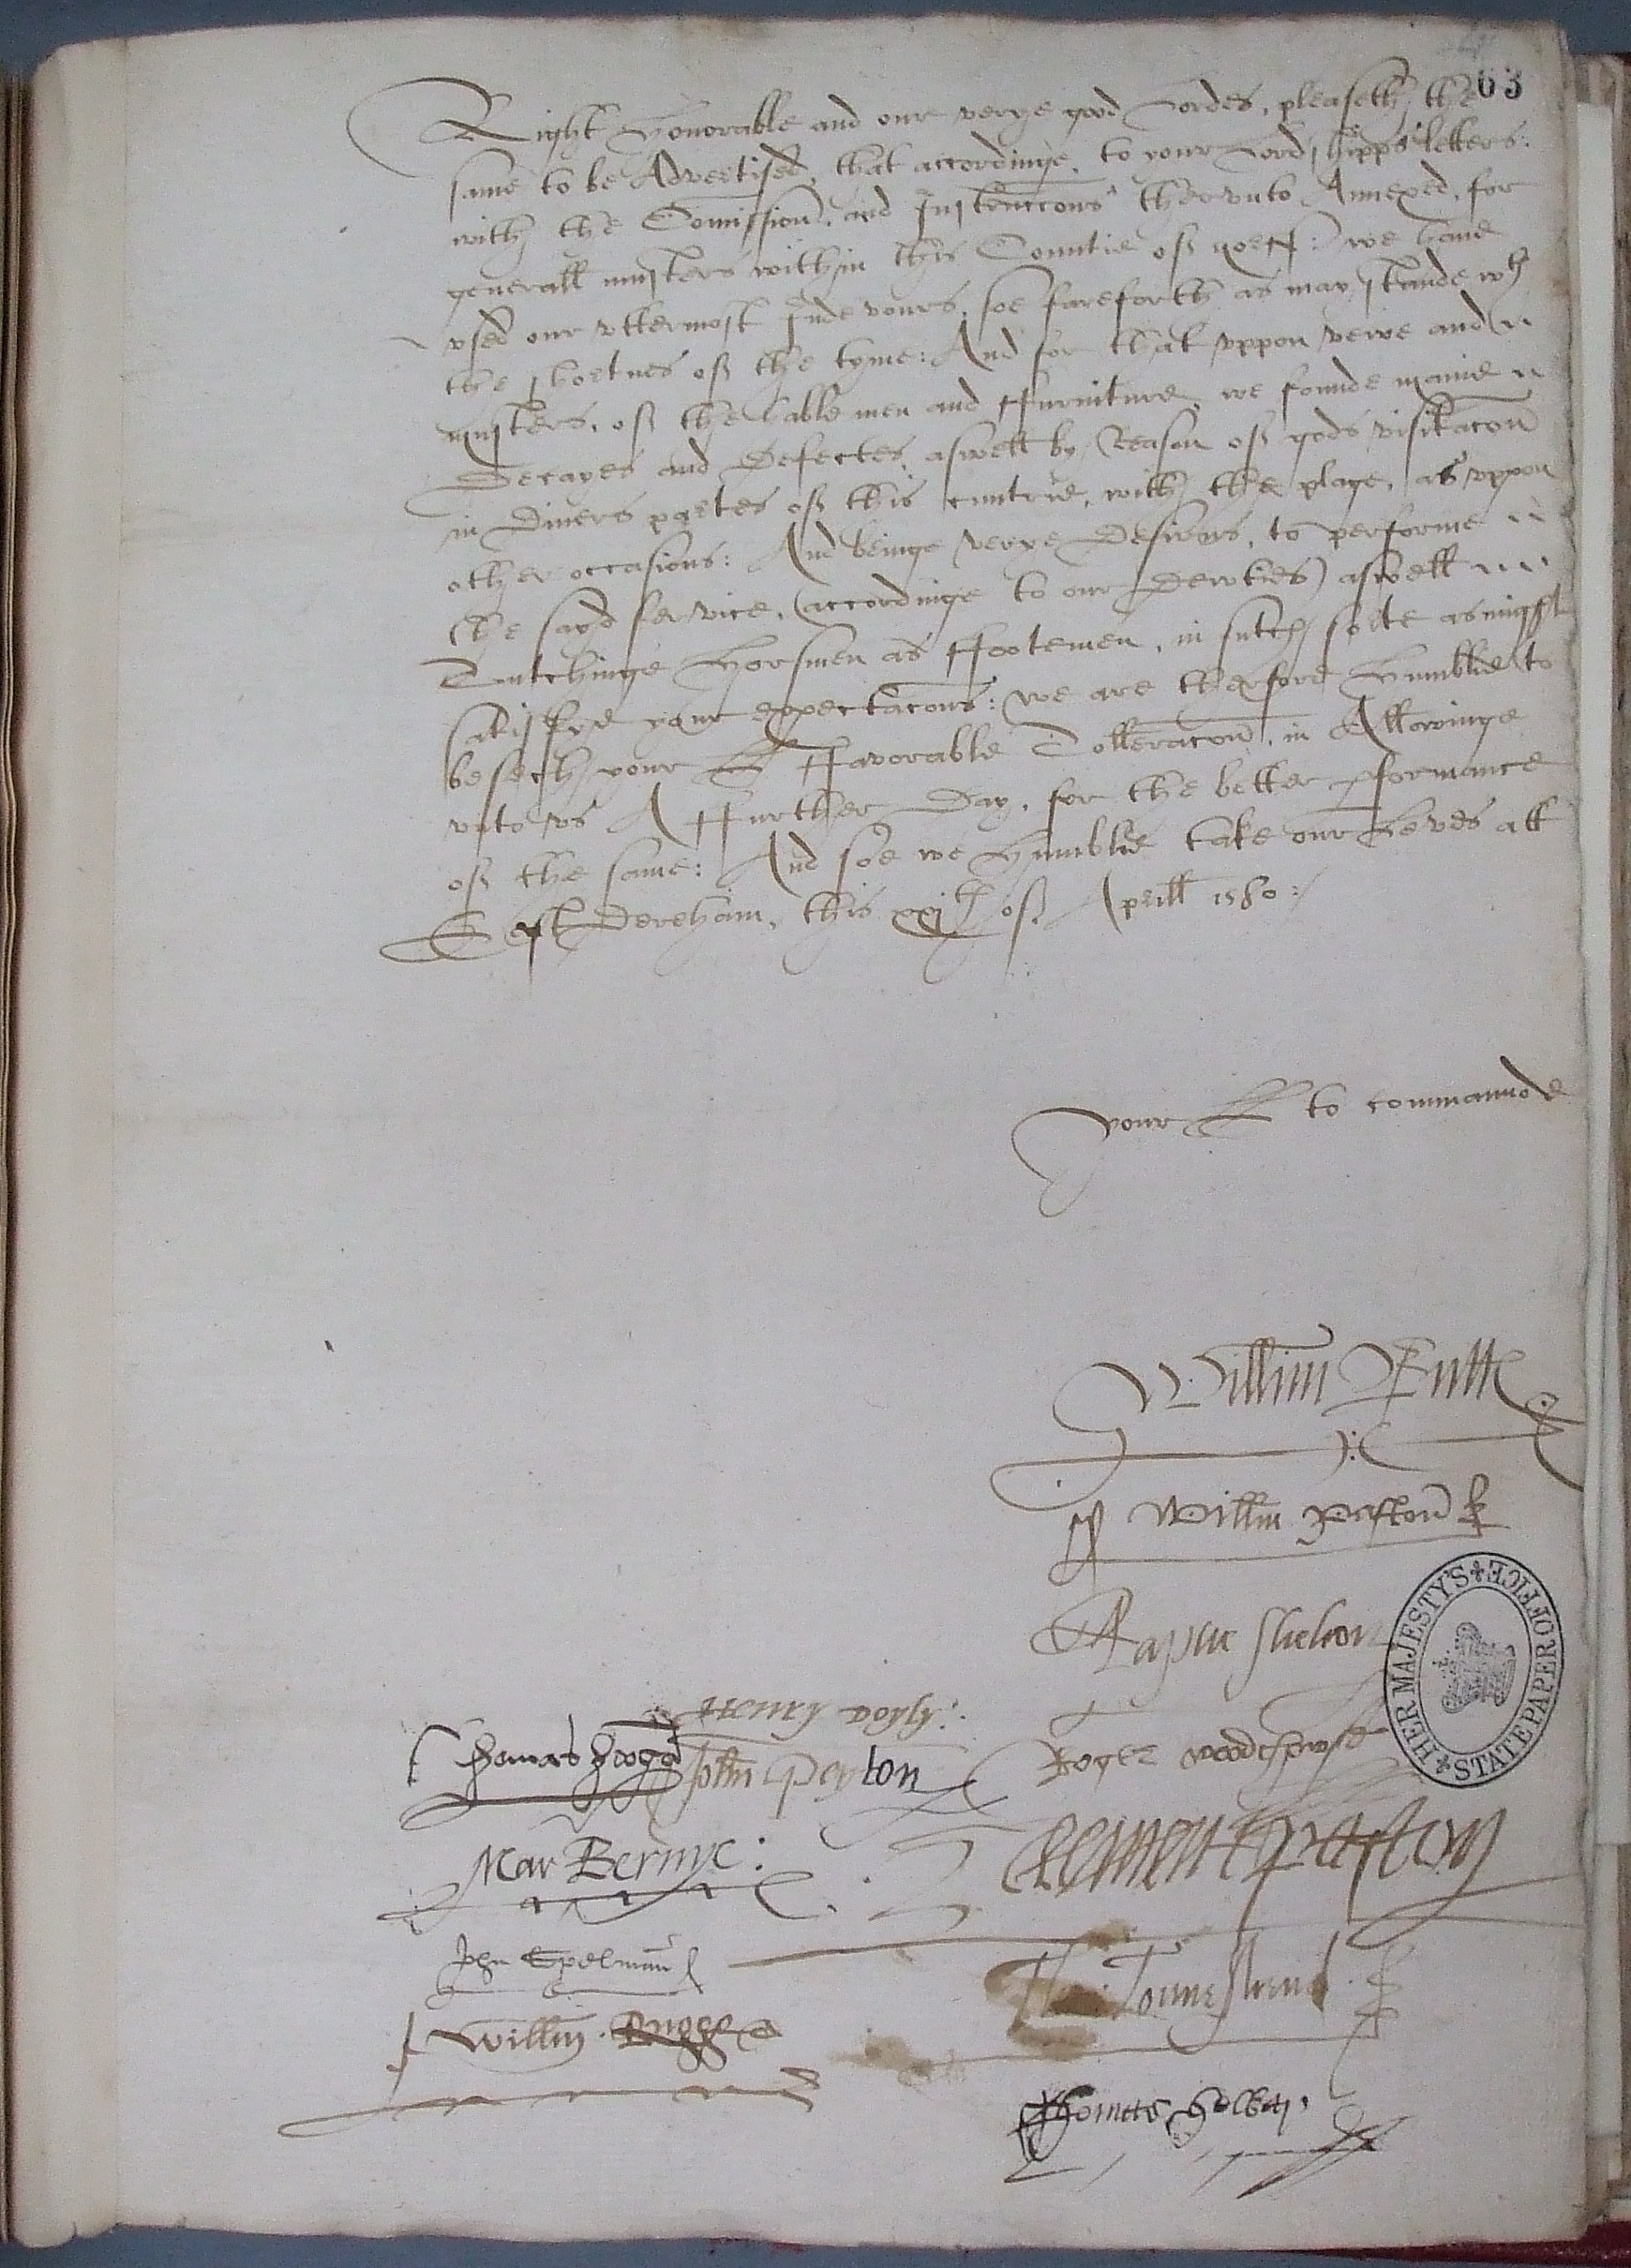 63
Right Honorable and our verye good Lordes, pleaseth the
same to be Advertised, that accordinge, to your Lordshipps letters:
with the Comission, and Instruccons thervnto Annexed, for
generall musters within this Countie off norff: we haue
vsed our vttermost Indevours, soe fareforth as may stande wth
the shortnes off the tyme: And for that vppon vewe and
musters, off the hable men and ffurniture, we founde manie
Decayes and Defectes, aswell by Reason off gods visitacon
in Divers partes off this cuntrie, with the plage, as vppon
other occasions: And beinge verye Desirous, to performe
the sayd service, (accordinge to our Dewties) aswell
Tutchinge Horsmen as ffootemen, in sutch sorte as might
satisfye your expectacons: we are therfore Humblie to
besech your LL ffavorable Tolleracon, in Allowinge
vnto vs A ffurther Day, for the better pformance
off the same: And soe we Humblie take our Leves att
Est Dereham, this xxjth off Aprill 1580:/
your LL to commaunde
Willim Butt
Willm paston
Raphe Shelton
Henry Doyly:
Thomas
John Peyton
Roger woodhowse
Mar Bernye:
Clement Paston
John Spelman
Townshend
Willm. Bugge
Thomas
HER MAJESTY'S STATE PAPER OFFICE